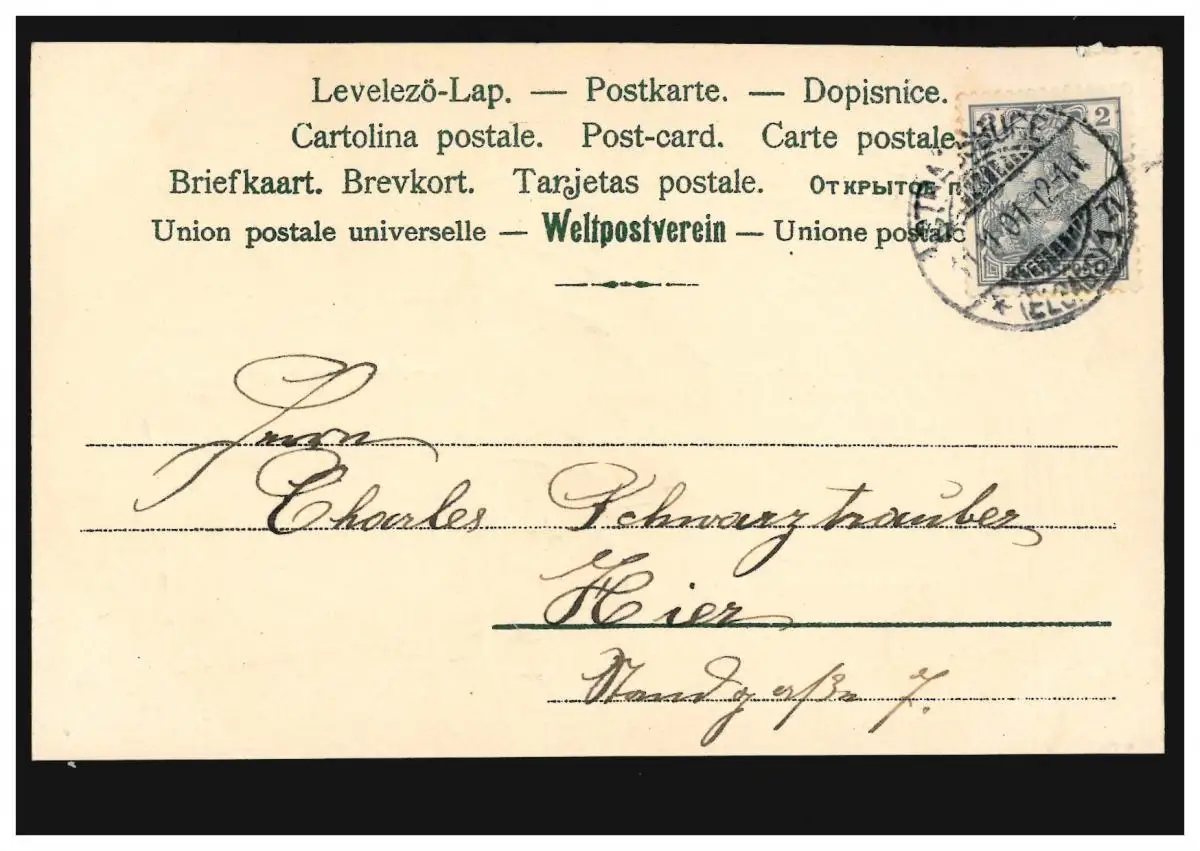 Levelező-Lap. — Postkarte. — Dopisnice.
Cartolina postale. Post-card. Carte postale
Briefkaart. Brevkort. Tarjetas postale. Открытое п
Union postale universelle — Weltpostverein — Unione postale
2
STRASSBURG
11.01. 12-1 N
* (ELSASS) 1
Herrn
Charles Schwarztrauber
Hier
7.